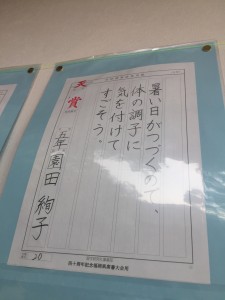 暑い日がつづくので、
体の調子に
気を付けて
すごそう。
天賞
五年 園田 絢子
20